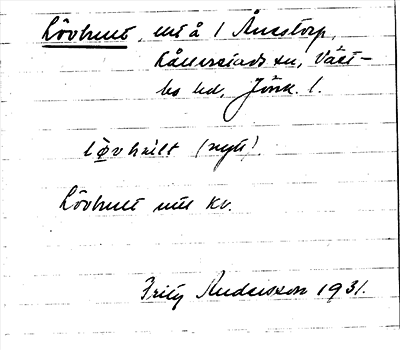 Lövhult, utå 1 Ånestorp,
Kållerstads sn, Väst-
bo hd, Jönk. l.
løvhult (nytt).
Lövhult utå kv.
Fritz Andersson 1931.